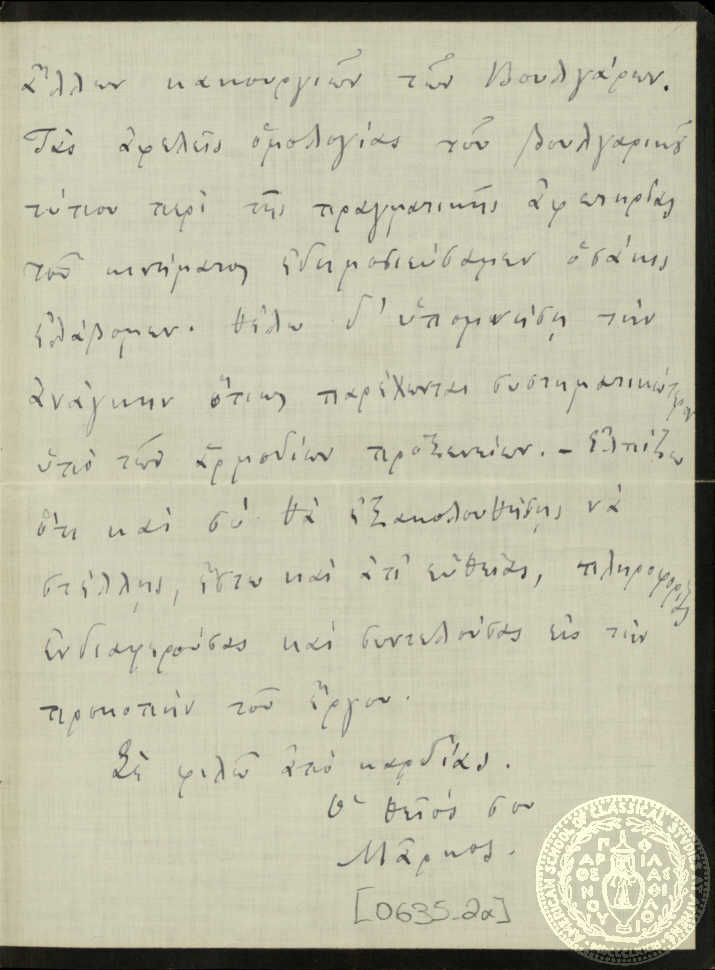 ἄλλων κακουργιῶν τῶν Βουλγάρων.
Τὰς ἀφελεῖς ὁμολογίας τοῦ βουλγαρικοῦ
τύπου περὶ τῆς πραγματικῆς ἀφετηρίας
τοῦ κινήματος ἐδημοσιεύσαμεν ὁσάκις
ἐλάβομεν. Θέλω δ' ὑπομνήσῃ τὴν
ἀνάγκην ὅπως παρέχωνται συστηματικώτερον
ὑπὸ τῶν ἁρμοδίων προξενείων. – Ἐλπίζω
ὅτι καὶ σὺ θὰ ἐξακολουθήσῃς νὰ
στέλλῃς, ἔστω καὶ ἀπ' εὐθείας, πληροφορίας
ἐνδιαφερούσας καὶ συντελούσας εἰς τὴν
προκοπὴν τοῦ ἔργου.
Σὲ φιλῶ ἀπὸ καρδίας.
Ὁ θεῖός σου
Μᾶρκος.
[0635-2α]
AMERICAN SCHOOL OF CLASSICAL STUDIES AT ATHENS
ΠΑΡΘΕΝΟΥ ΦΙΛΑΣ ΦΙΛΟΥ
MDCCCLXXXI